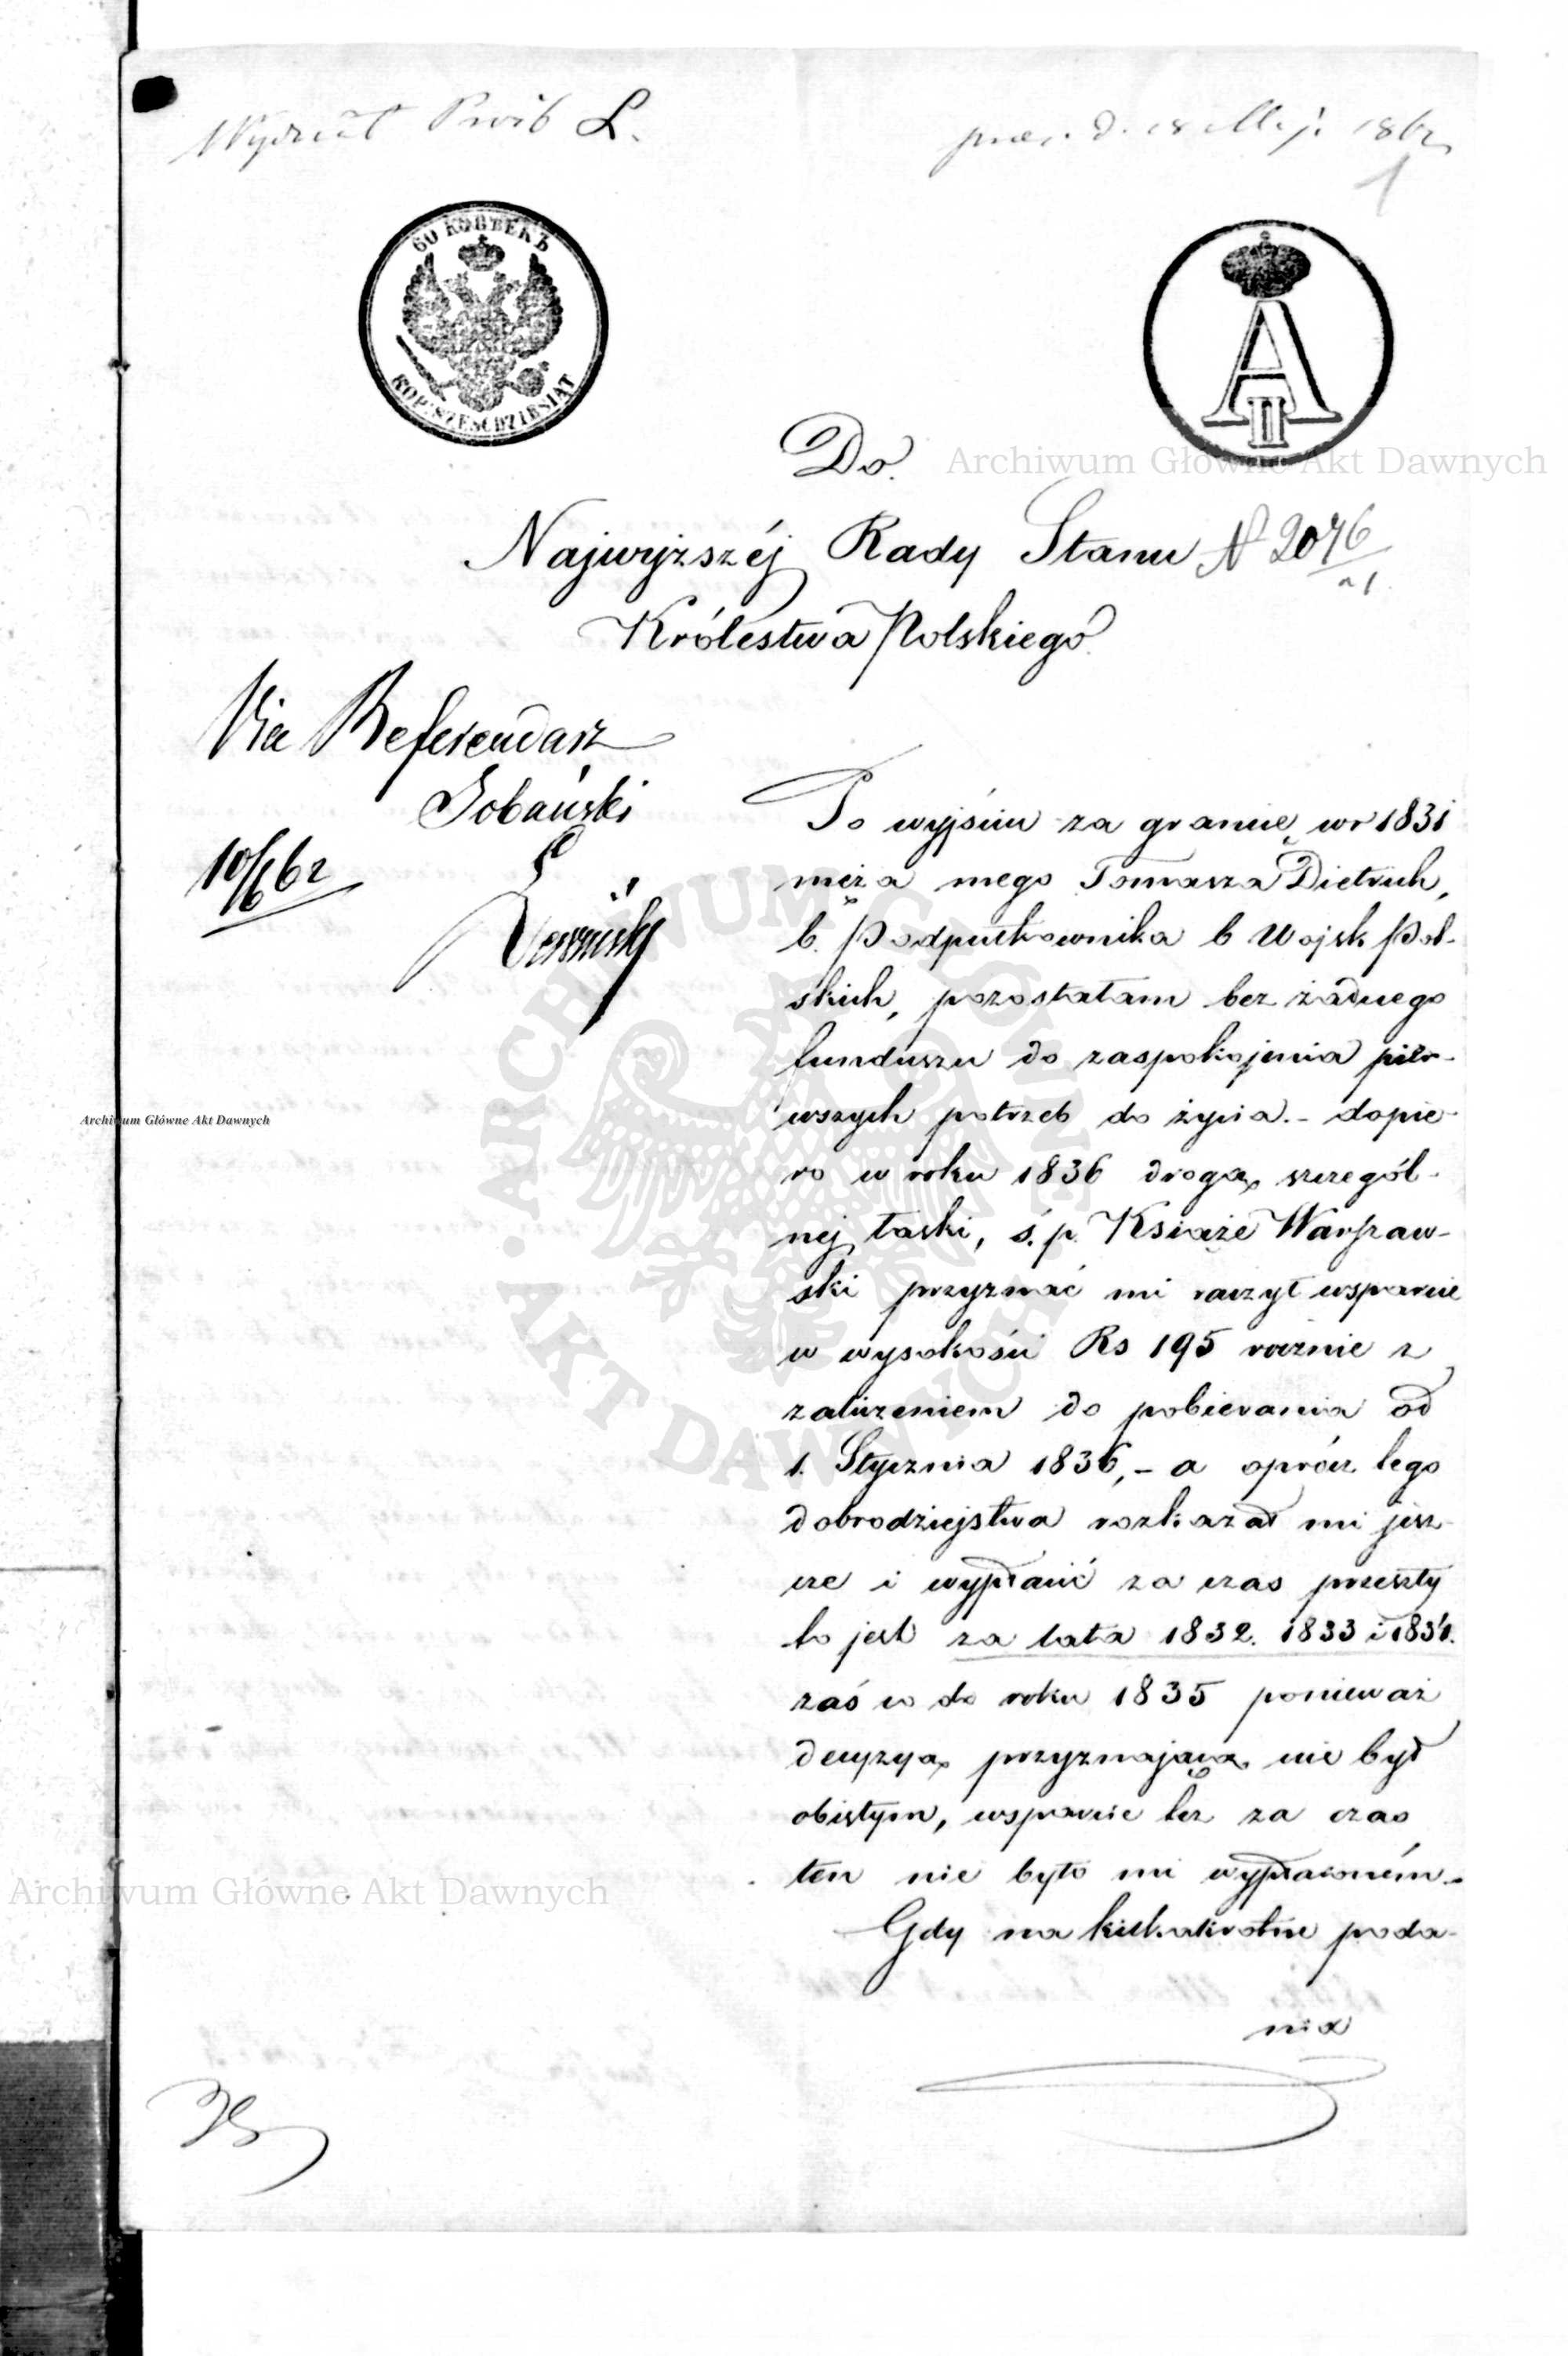 Wydział
pres. d. 18 Maj. 1862
1
60 КОПѢЕКЪ
KOP: SZEŚĆDZIESIĄT
A II
Do
Archiwum Główne Akt Dawnych
Najwyższéj Rady Stanu № 2046
Królestwa Polskiego
Vice Referendarz
Łobański
10/6 62
Po wyjściu za granicę w r 1831
męża mego Tomasza Dietrich,
b. Podpułkownika b Wojsk Pol-
skich, pozostałam bez żadnego
funduszu do zaspokojenia pier-
wszych potrzeb do życia. – dopie-
ro w roku 1836 drogą szczegól-
nej łaski, ś. p. Książe Warszaw-
ski przyznać mi raczył wsparcie
w wysokości Rs 195 rocznie z
zaliczeniem do pobierania od
1. Stycznia 1836, – a oprócz tego
dobrodziejstwa rozkazał mi jesz-
cze i wypłacić za czas przeszły
to jest za lata 1832. 1833 i 1834.
zaś co do roku 1835 ponieważ
decyzyą przyznającą nie był
objętym, wsparcie też za czas
ten nie było mi wypłaconém. –
Gdy na kilkakrotne poda-
nia
Archiwum Główne Akt Dawnych
Archiwum Główne Akt Dawnych
ARCHIWUM GŁÓWNE • AKT DAWNYCH •